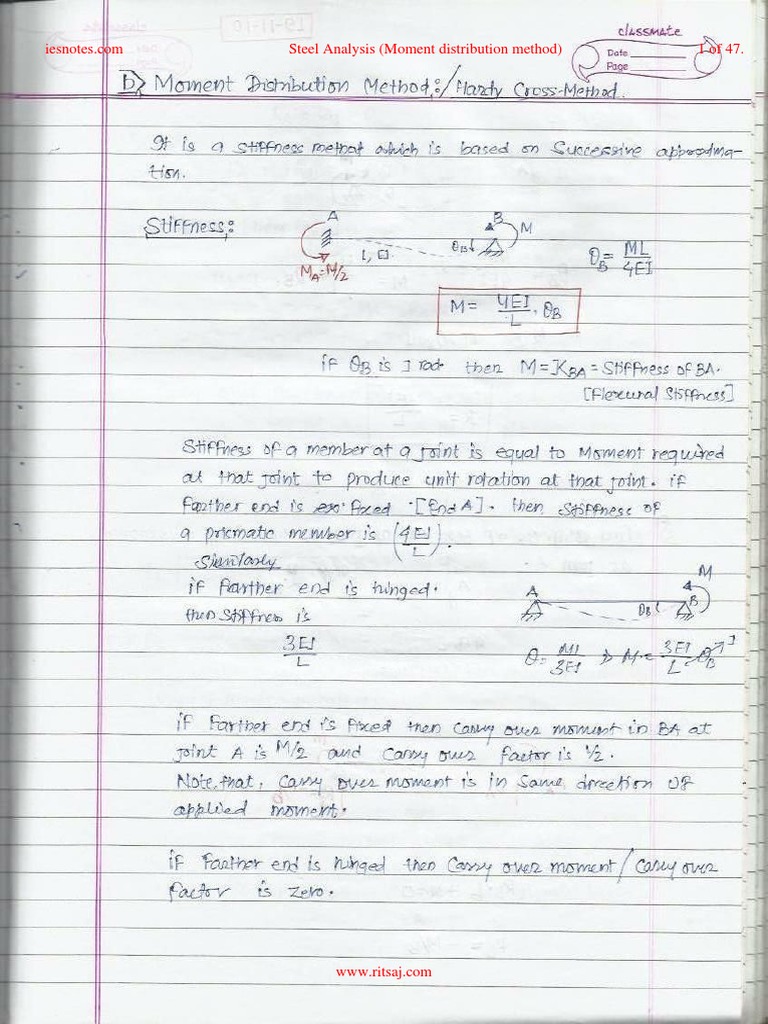 classmate
iesnotes.com Steel Analysis (Moment distribution method) 1 of 47.
Date
Page
D> Moment Distribution Method:/Hardy Cross-Method.
It is a stiffness method which is based on Successive approxima-
tion.
Stiffness:
A B M
L, EI θB
MA=M/2
θB = ML/4EI
M = 4EI/L . θB
if θB is 1 rad then M = KBA = Stiffness of BA.
[Flexural Stiffness]
Stiffness of a member at a joint is equal to Moment required
at that joint to produce unit rotation at that joint. if
farther end is fixed [End A]. then stiffness of
a prismatic member is (4EI/L).
Similarly
if farther end is hinged.
then stiffness is
3EI/L
A θB B M
θ = Ml/3EI ⇒ M = 3EI/L θB 1
if farther end is fixed then carry over moment in BA at
joint A is M/2 and carry over factor is 1/2.
Note that, carry over moment is in same direction of
applied moment.
if farther end is hinged then carry over moment/carry over
factor is zero.
www.ritsaj.com